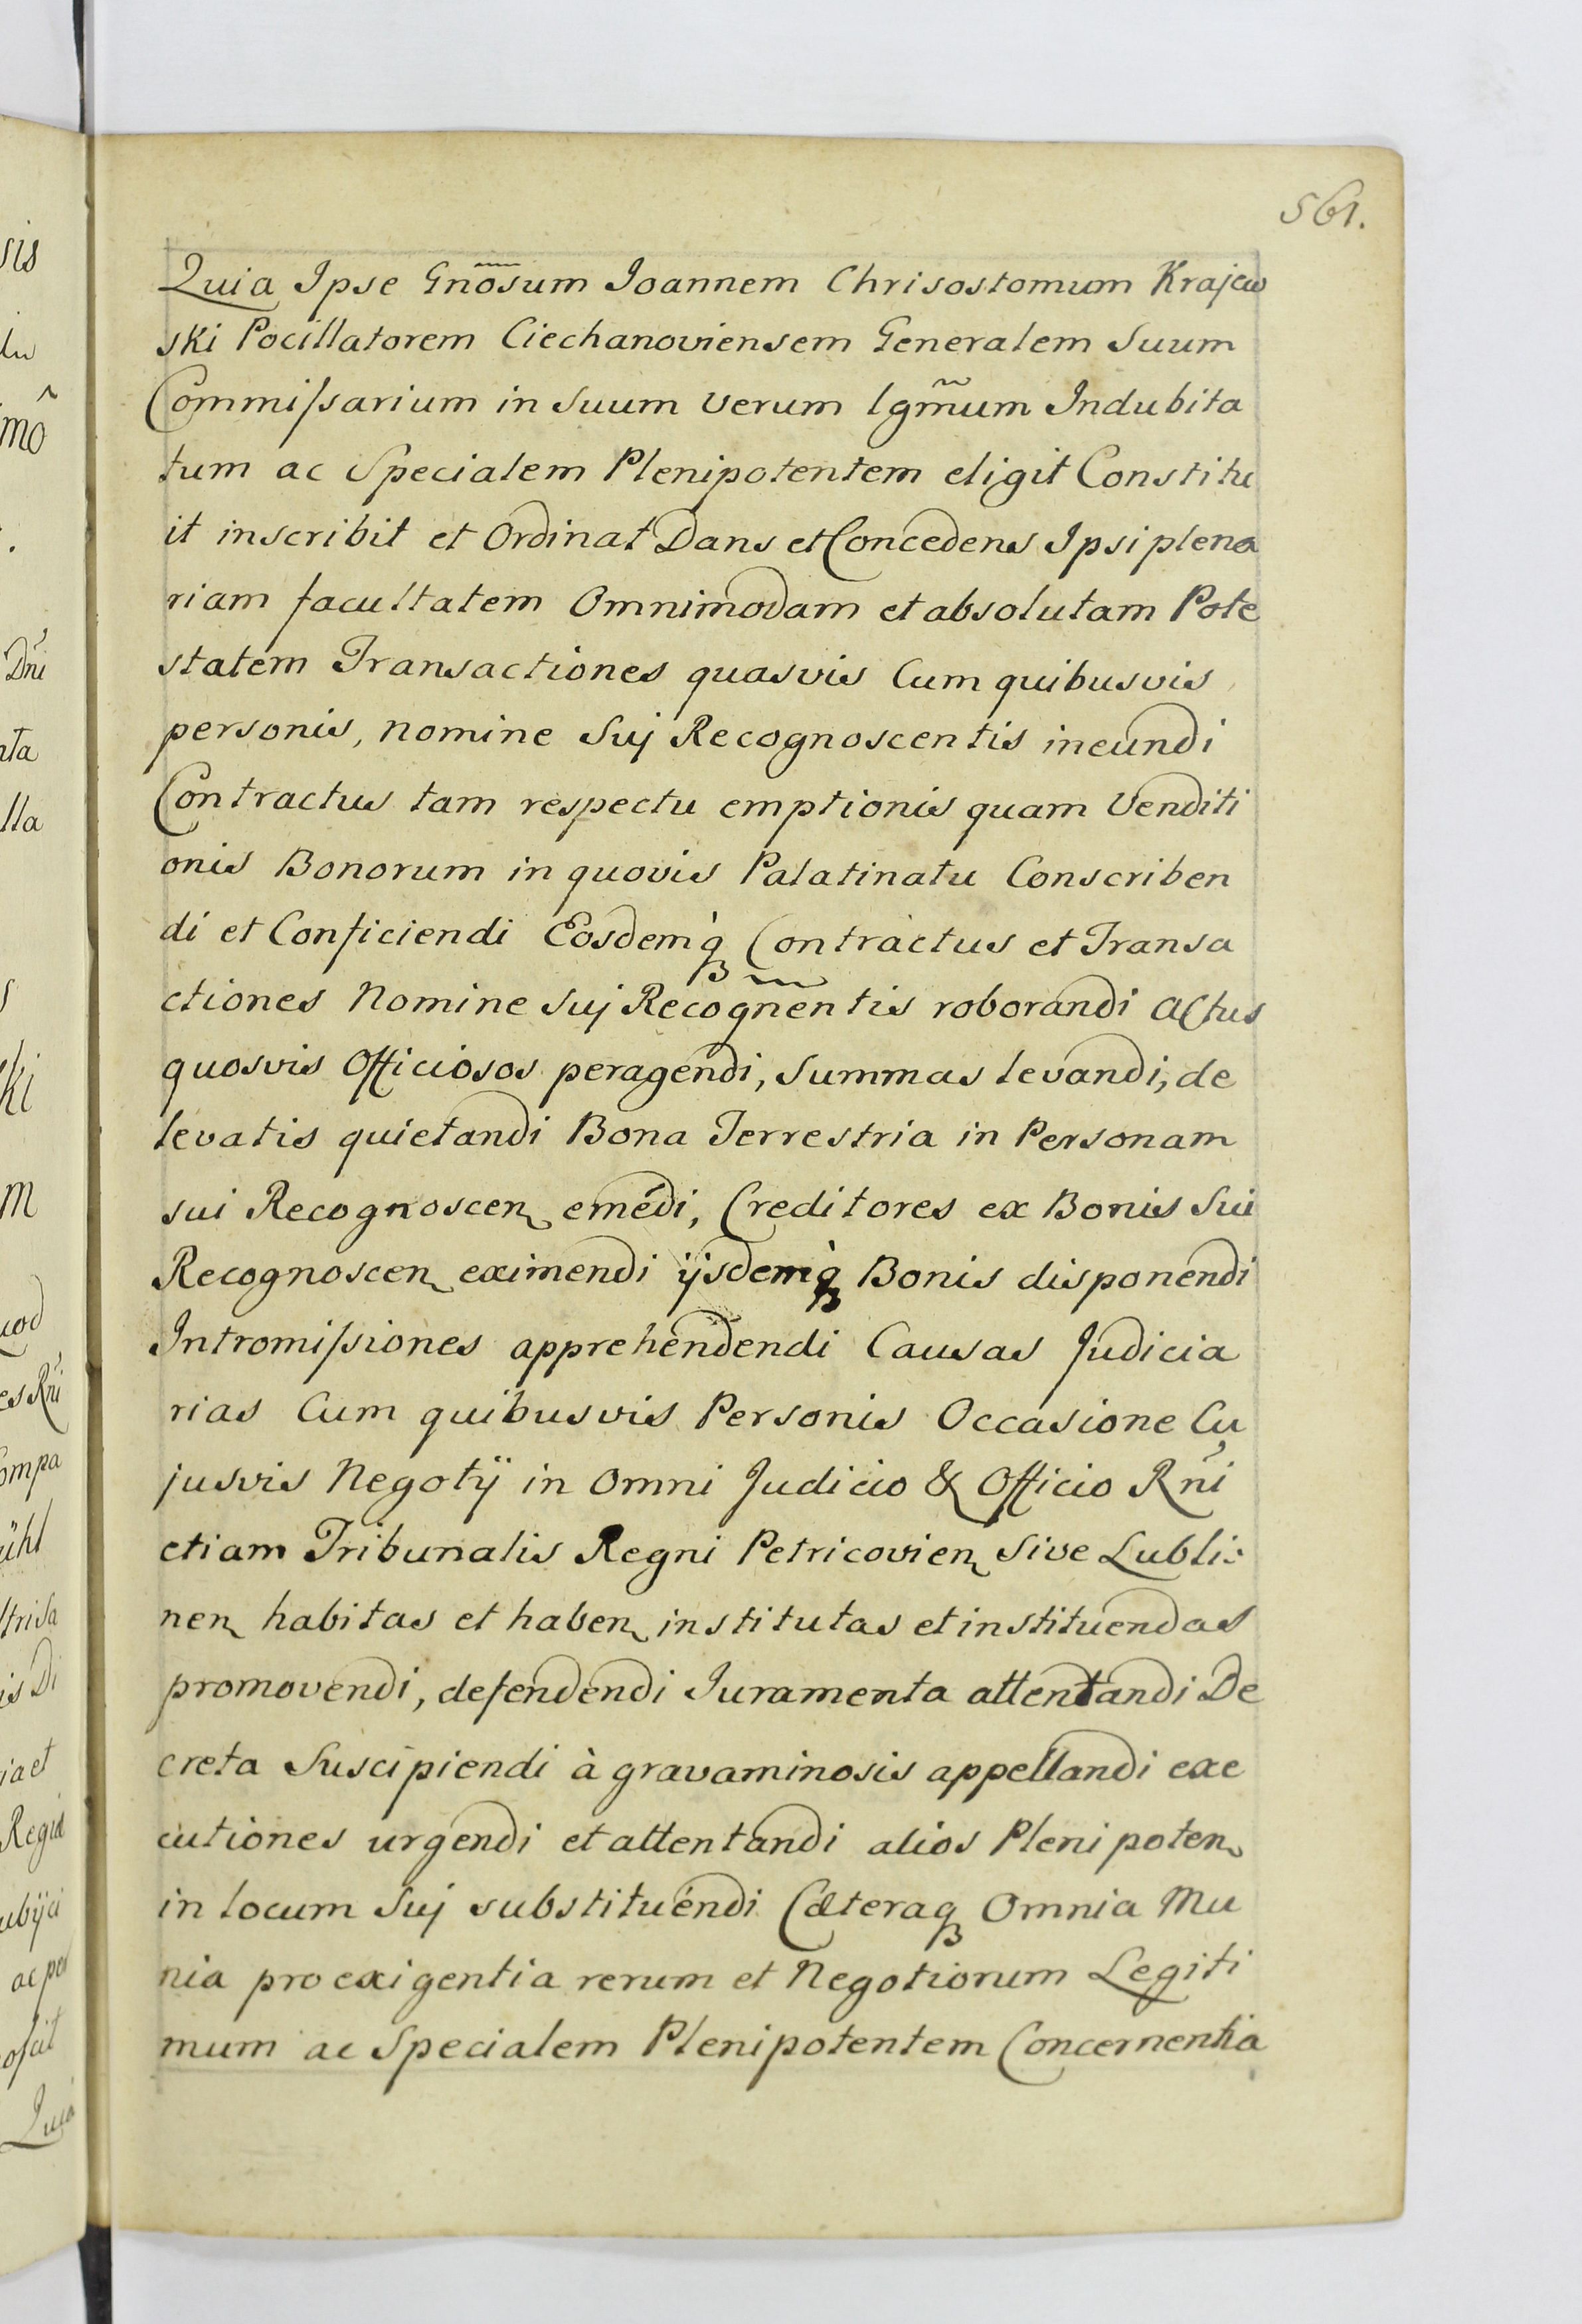 561.
Quia Ipse Gnõsum Joannem Chrisostomum Krajew
ski Pocillatorem Ciechanoviensem Generalem Suum
Commissarium in Suum verum lgm̃um Indubita
tum ac Specialem Plenipotentem eligit Constitu
it inscribit et Ordinat Dans et Concedens Ipsi plena
riam facultatem Omnimodam et absolutam Pote
statem Transactiones quasvis Cum quibusvis
personis, nomine Suj Recognoscentis ineundi
Contractus tam respectu emptionis quam Venditi
onis Bonorum in quovis Palatinatu Conscriben
di et Conficiendi Eosdemq̀ Contractus et Transa
ctiones Nomine Suj Recogñentis roborandi actus
quosvis Officiosos peragendi, Summas levandi, de
levatis quietandi Bona Terrestria in Personam
sui Recognoscen emédi, Creditores ex Bonis Sui
Recognoscen eximendi ijsdemq̀ Bonis disponendi
Intromissiones apprehendendi Causas Judicia
rias Cum quibusvis Personis Occasione Cu
jusvis Negotÿ in Omni Judicio & Officio Rńi
etiam Tribunalis Regni Petricovien Sive Lubli:
nen habitas et haben institutas et instituendas
promovendi, defendendi Juramenta attentandi De
creta Suscipiendi à gravaminosis appellandi exe
cutiones urgendi et attentandi alios Plenipoten
in locum Suj substituendi Cæteraq Omnia Mu
nia pro exigentia rerum et Negotiorum Legiti
mum ac Specialem Plenipotentem Concernentia
sis
mô
Dńi
lla
ki
m
uod
es Rńi
ompa
is Di
ia et
Regia
Quia